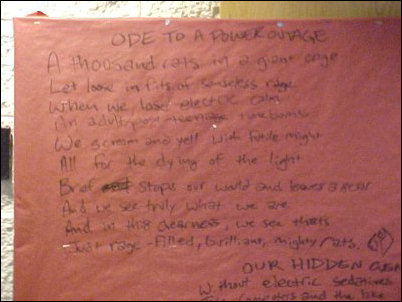 ODE TO A POWER OUTAGE
A thousand rats in a giant cage
Let loose in fits of senseless rage
When we lose electric calm
An adult, teenage time bomb
We scream and yell with futile might
All for the dying of the light
Brief stops our world and leaves a scar
And we see truly what we are
And in this clearness, we see thats
Just rage-filled, brilliant, mighty rats.
OUR HIDDEN
Without electric sedatives
and the fake